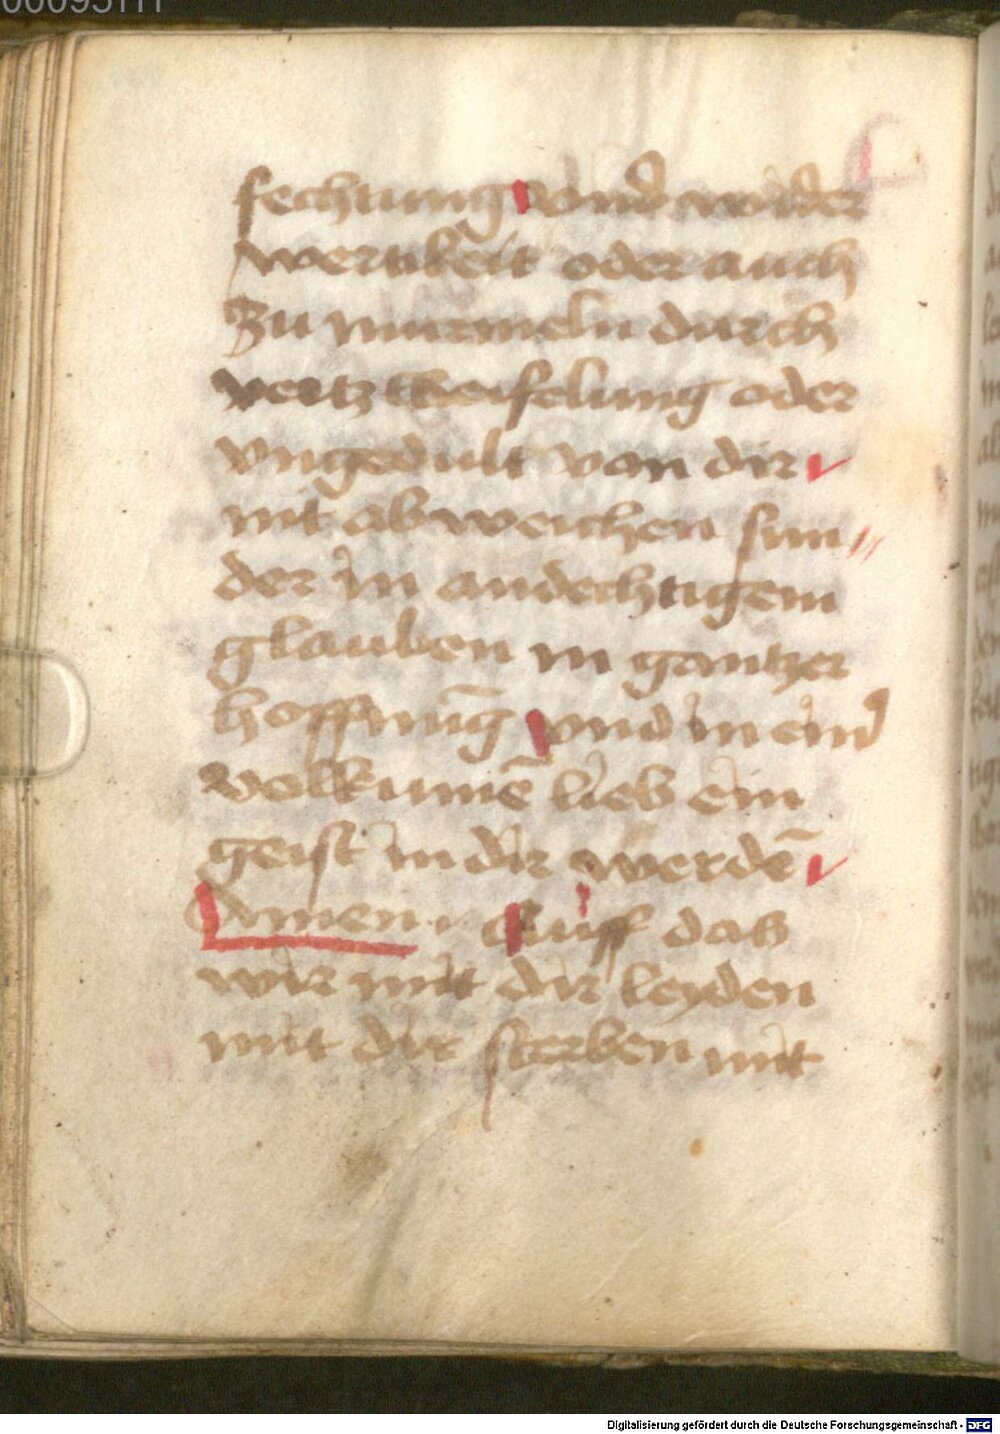 fechtung vnd wider
wertikeit oder auch
zu murmeln durch
vertzweifelung oder
vngedult von dir
nit abweichen sun//
der in andechtigem
glauben in gantzer
hoffnūg vnd in ein᷑
volkumē lieb ein
geist in dir werdē
Amen. Auff das
wir mit dir leyden
mit dir sterben mit
Digitalisierung gefördert durch die Deutsche Forschungsgemeinschaft - DFG